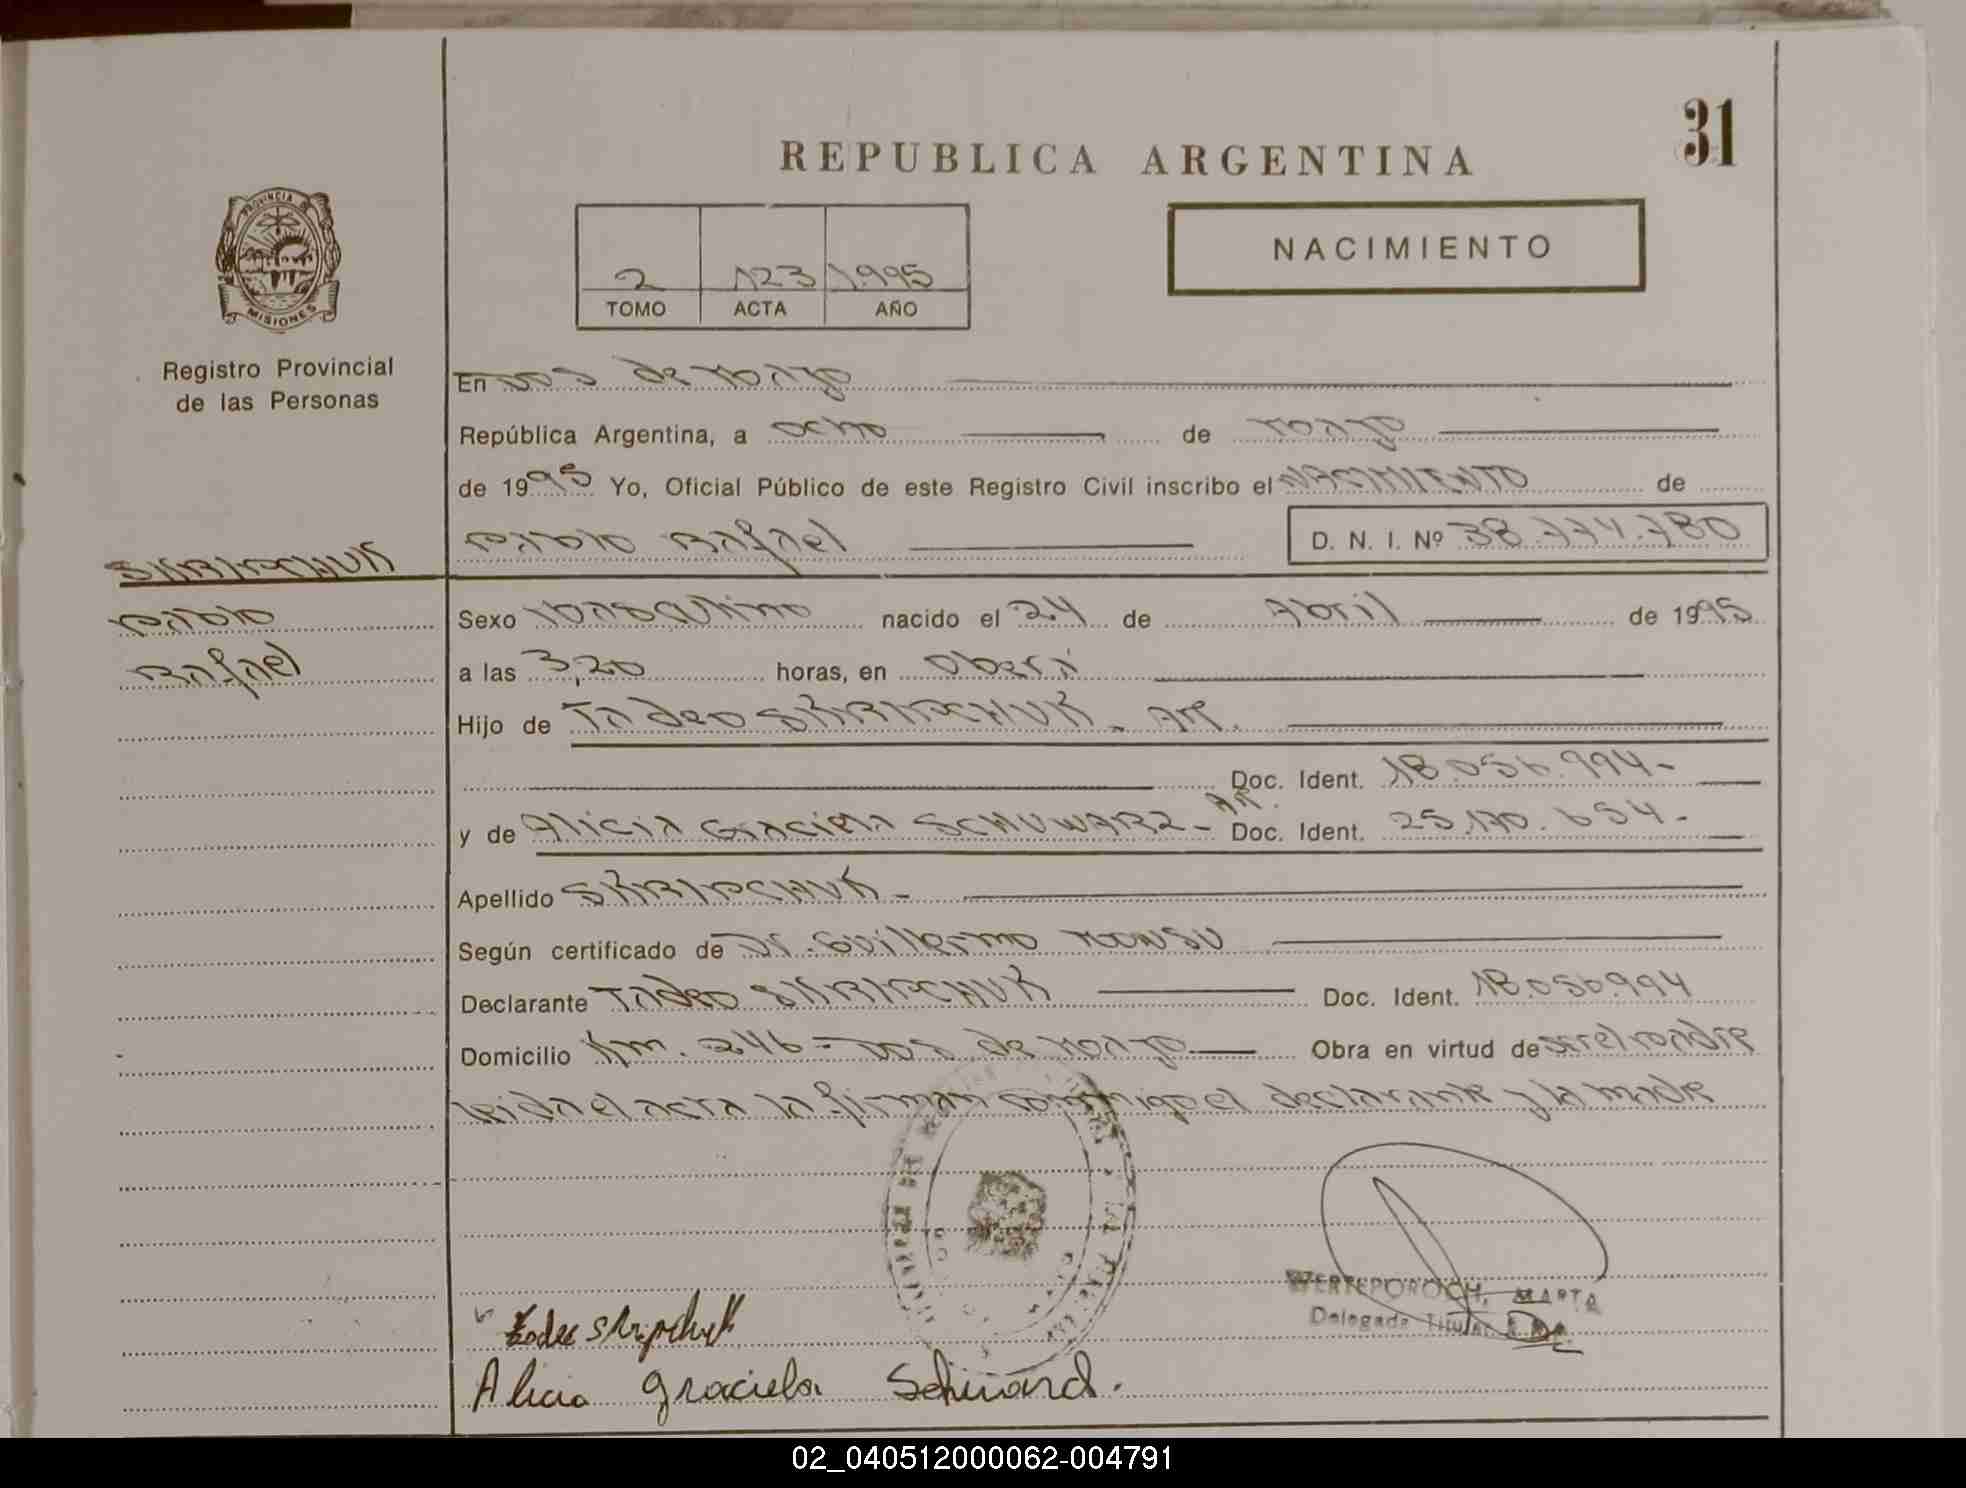 31
REPUBLICA ARGENTINA
NACIMIENTO
2 123 1.995
TOMO ACTA AÑO
PROVINCIA DE
MISIONES
Registro Provincial
de las Personas
En Dos de Mayo
República Argentina, a ocho de Mayo
de 1995 Yo, Oficial Público de este Registro Civil inscribo el NACIMIENTO de
Pablo Rafael D. N. I. Nº 38.774.780
SKRIPCHUK
Pablo
Rafael
Sexo Masculino nacido el 24 de Abril de 1995
a las 3,20 horas, en Oberá
Hijo de Tadeo SKRIPCHUK - Ar.
Doc. Ident. 18.056.994-
y de Alicia Graciela SCHUWARZ - Ar. Doc. Ident. 25.170.654-
Apellido SKRIPCHUK -
Según certificado de Dr. Guillermo
Declarante Tadeo SKRIPCHUK Doc. Ident. 18.056.994
Domicilio Km. 246 - Dos de Mayo Obra en virtud de ser el padre
leida el acta la firman conmigo el declarante y la madre
WERTEPOROCH, MARTA
Delegada Titular
Alicia Graciela
02_040512000062-004791